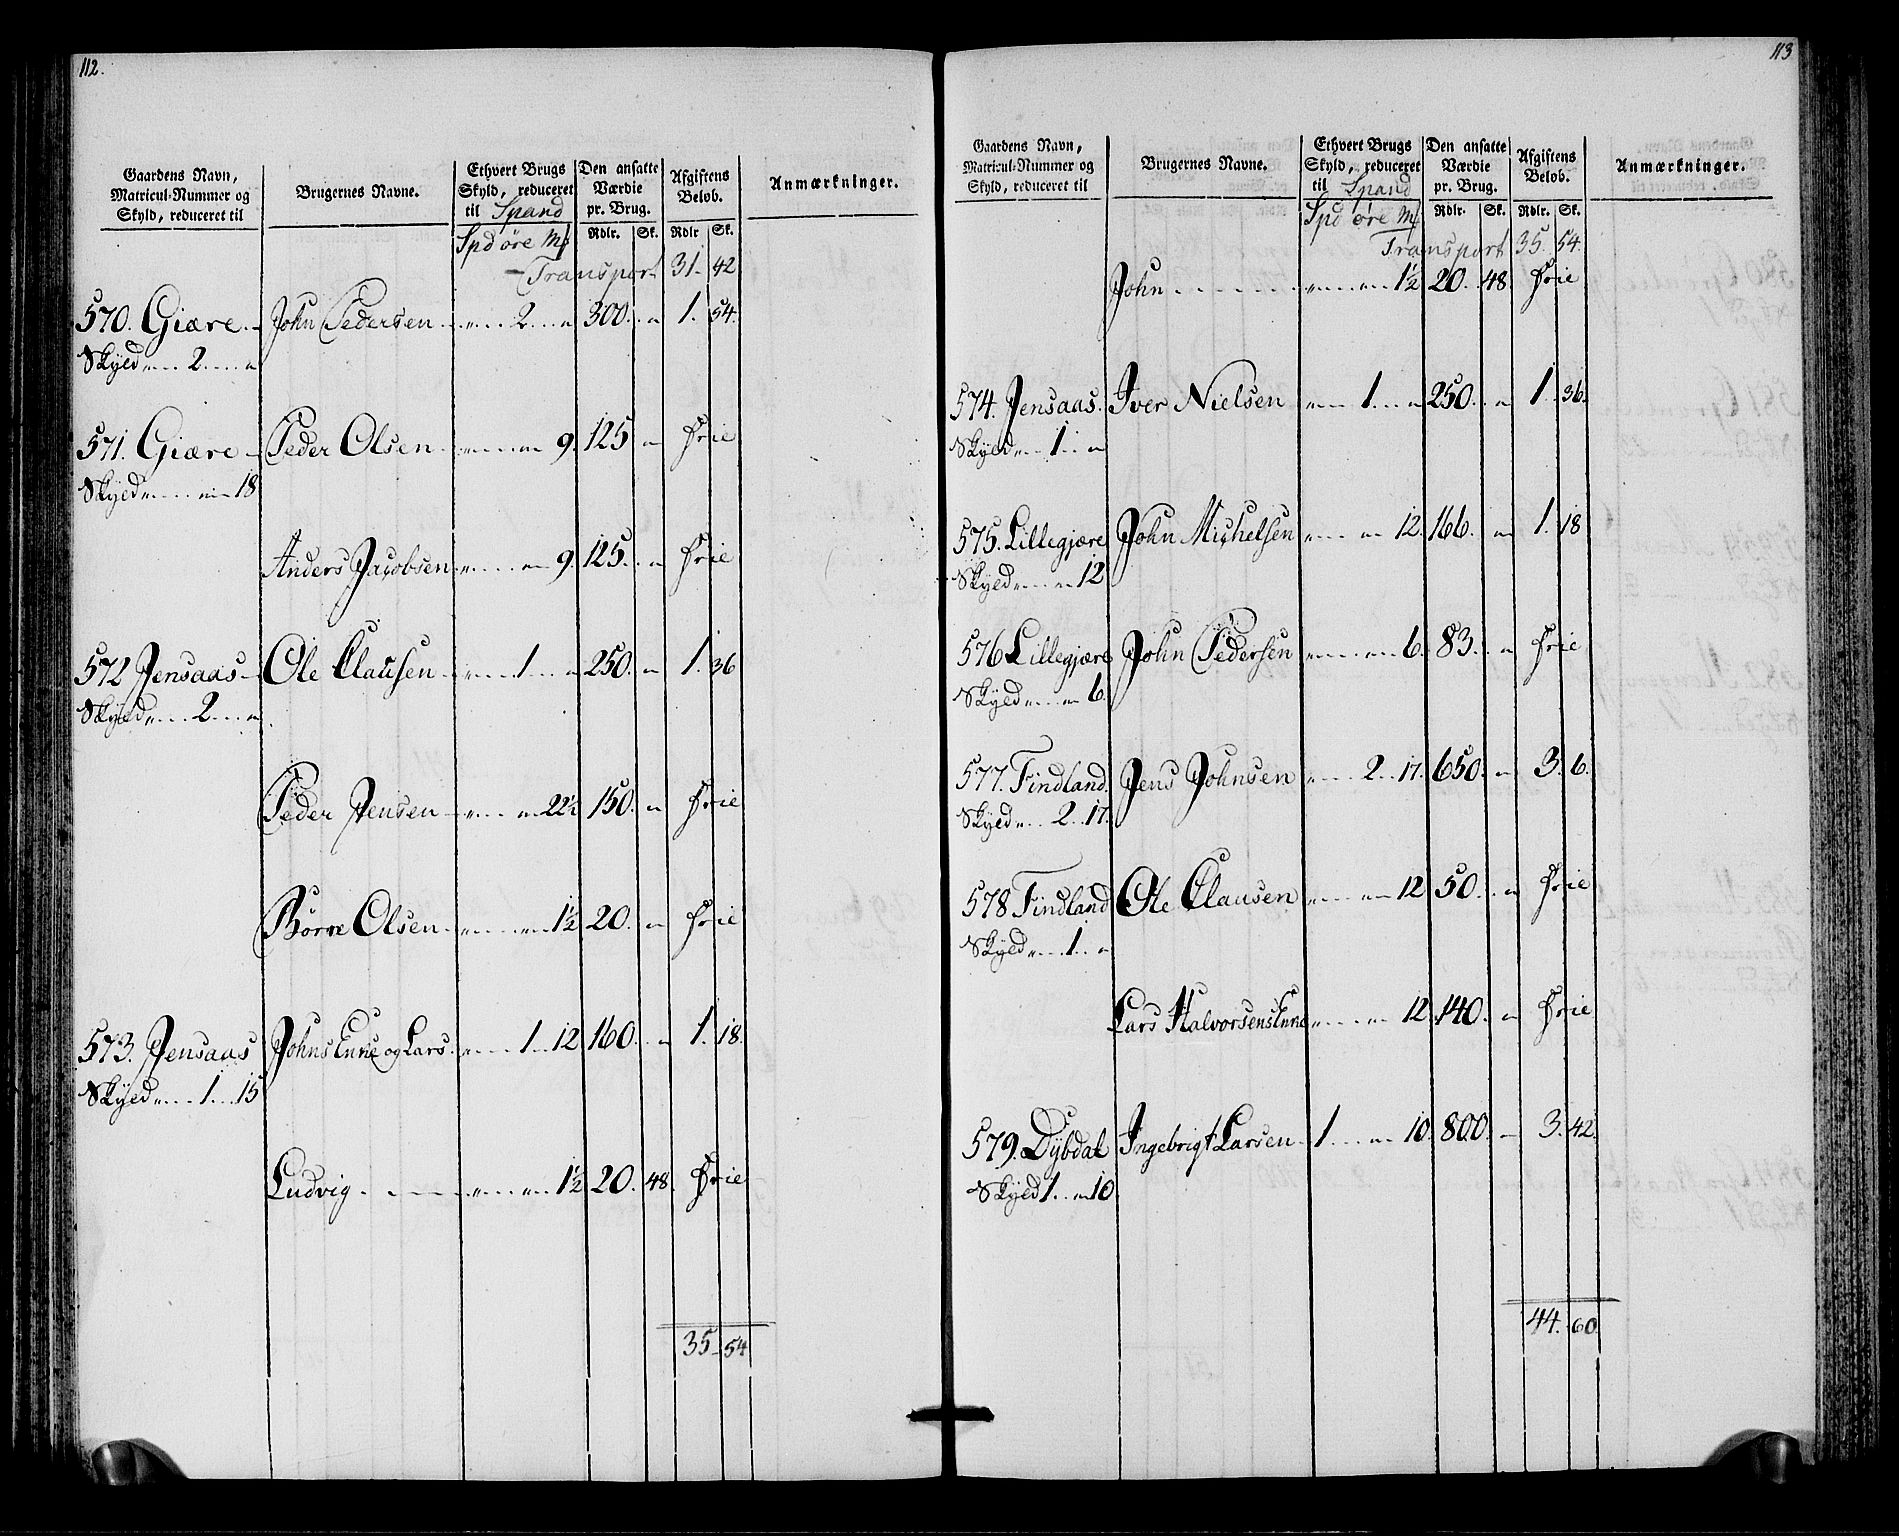 112.
Gaardens Navn, Matricul-Nummer og Skyld, reduceret til
Brugernes Navne.
Ethvert Brugs Skyld, reduceret til Spand
Den ansatte Værdie pr. Brug.
Afgiftens Beløb.
Anmærkninger.
Spd øre Mk Rdlr. Sk. Rdlr Sk.
Transport 31 42
570. Giære John Pedersen 2 " 300 " 1. 54.
Skyld 2 "
571. Giære Peder Olsen " 9. 125 " Frie
Skyld " 18
Anders Jacobsen " 9. 125. " Frie
572 Jensaas Ole Clausen 1 " 250. " 1. 36
Skyld 2 "
Peder Jensen " 22½ 150. " Frie
Børre Olsen " 1½ 20. " Frie
573. Jensaas Johns Enke og Lars 1 12 160. " 1. 18.
Skyld 1 15
Ludvig " 1½ 20. 48. Frie
35 54
113
Gaardens Navn, Matricul-Nummer og Skyld, reduceret til
Brugernes Navne.
Ethvert Brugs Skyld, reduceret til Spand
Den ansatte Værdie pr. Brug.
Afgiftens Beløb.
Anmærkninger.
Spd øre Mk Rdlr. Sk. Rdlr. Sk.
Transport 35. 54.
John " 1½ 20. 48 Frie
574. Jensaas. Iver Nielsen 1 " 250. " 1. 36.
Skyld 1 "
575. Lillegjære John Michelsen " 12. 166. " 1. 18
Skyld " 12
576 Lillegjære John Pedersen " 6. 83. " Frie
Skyld " 6.
577. Findland. Jens Johnsen 2 17. 650. " 3. 6.
Skyld 2 17.
578 Findland Ole Clausen " 12 50. " Frie
Skyld 1 "
Lars Halvorsens Enke " 12 140. " Frie
579. Dybdal Ingebrigt Larsen 1 " 10. 800. 3. 42.
Skyld 1 " 10
44. 60